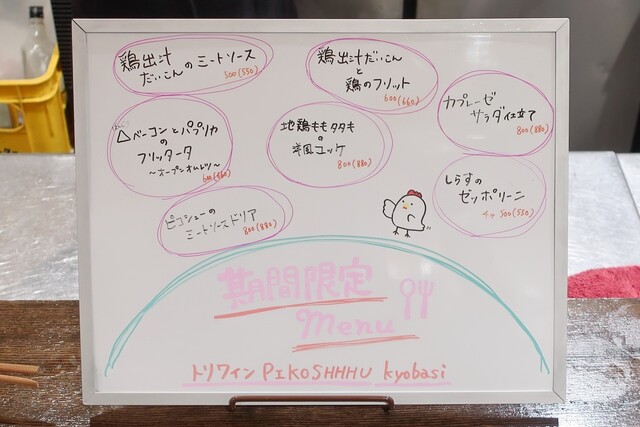 鶏出汁
だいこんのミートソース
500(550)
鶏出汁だいこん
と
鶏のフリット
600(660)
カプレーゼ
サラダ仕立て
800(880)
△ベーコンとパプリカ
の
フリッタータ
〜オープンオムレツ〜
600(660)
地鶏ももタタキ
の
洋風ユッケ
800(880)
しらすの
ゼッポリーニ
500(550)
ピコシューの
ミートソースドリア
800(880)
期間限定
Menu
トリワイン PIKOSHHHU kyobasi